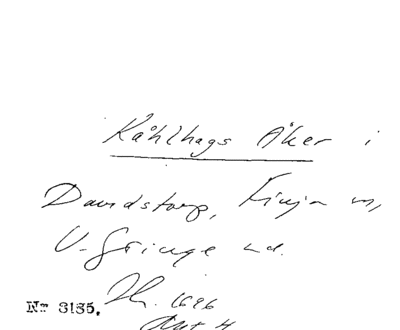 Kåhlhags Åker i
Davidstorp, Finja sn,
V. Göinge hd.
N:r 3185. Jh. 1696
Akt 4